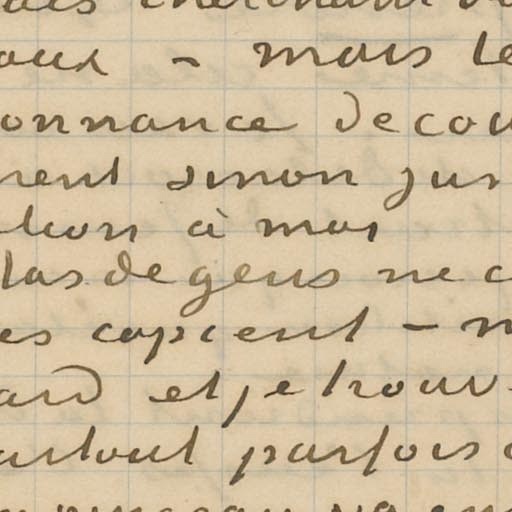 oux – mais le
onnance de cou
ment sinon jus
tion à mas
las de gens ne c
es copient – n
ard et je trouv
artout parfois